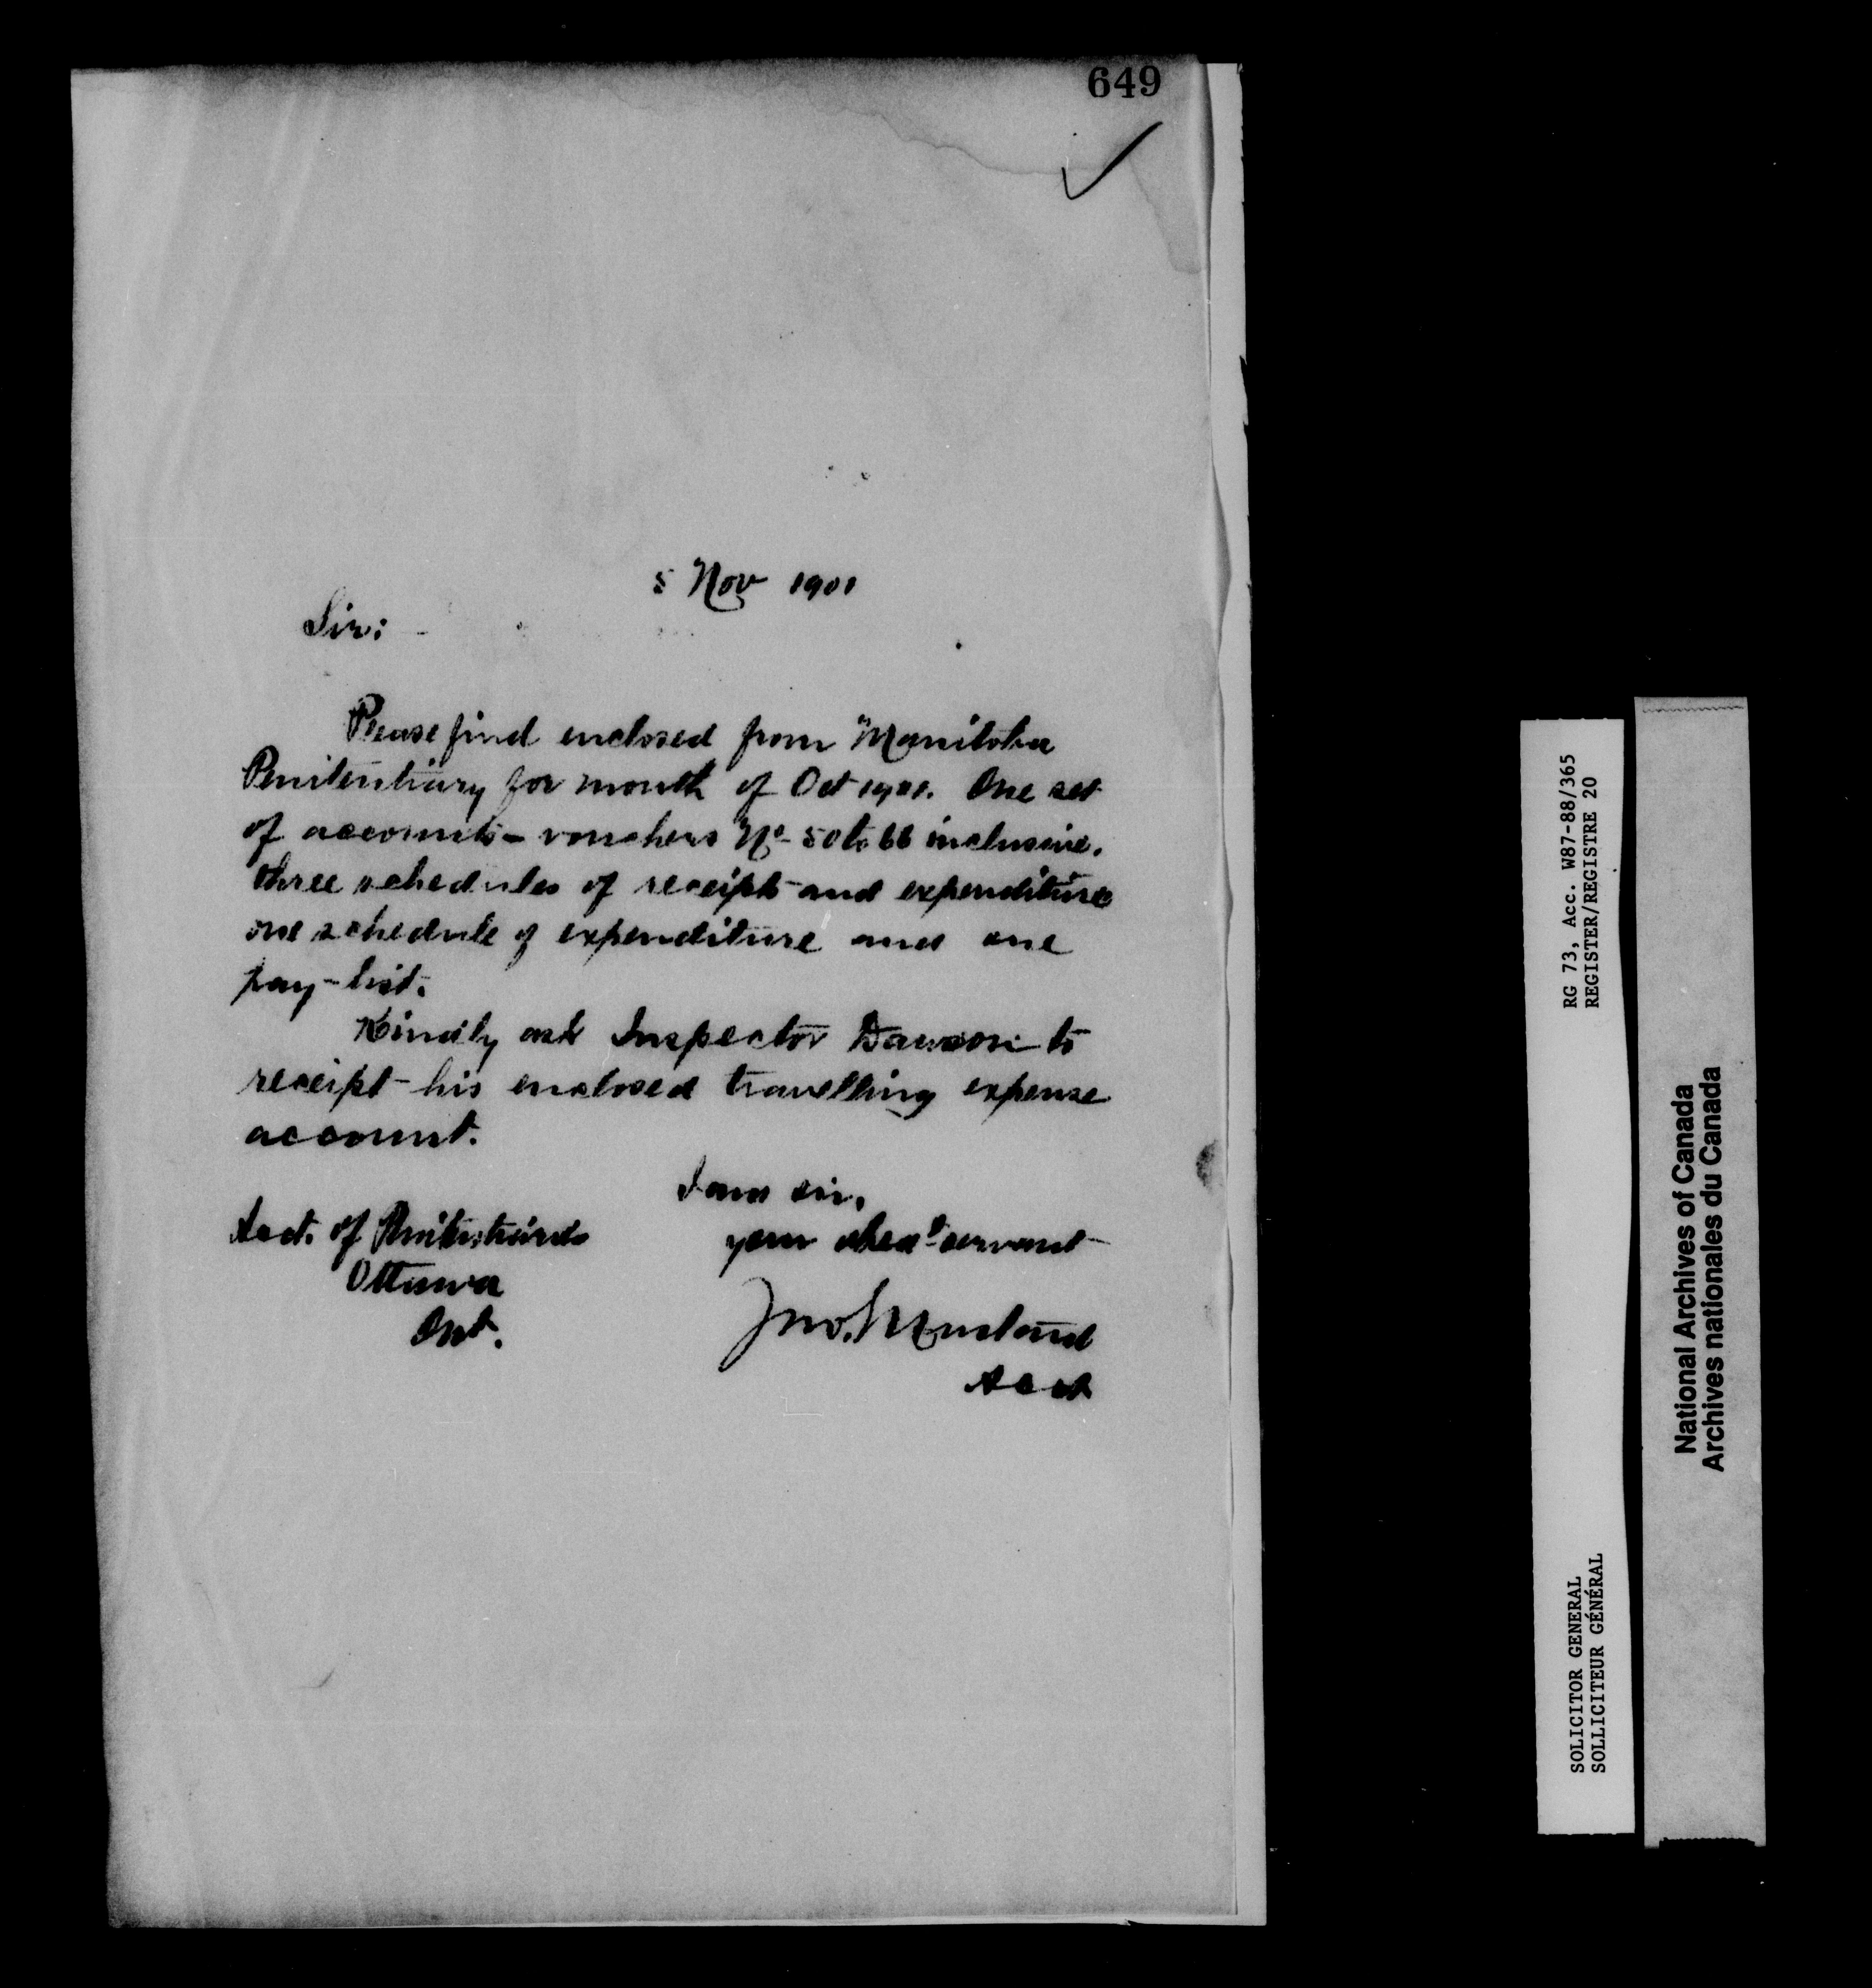 649
5 Nov 1901
Sir:
Please find enclosed from Manitoba
Penitentiary for month of Oct 1901. One set
of accounts - vouchers No - 50 to 66 inclusive.
three schedules of receipts and expenditure
one schedule of expenditure and one
pay-list.
Kindly ask Inspector Dawson to
receipt his enclosed travelling expense
account.
I am sir,
your obedt servant
Acct. of Penitentiaries
Ottawa
Ont.
Jno.
Acct
RG 73, Acc. W87-88/365
REGISTER/REGISTRE 20
SOLICITOR GENERAL
SOLLICITEUR GÉNÉRAL
National Archives of Canada
Archives nationales du Canada